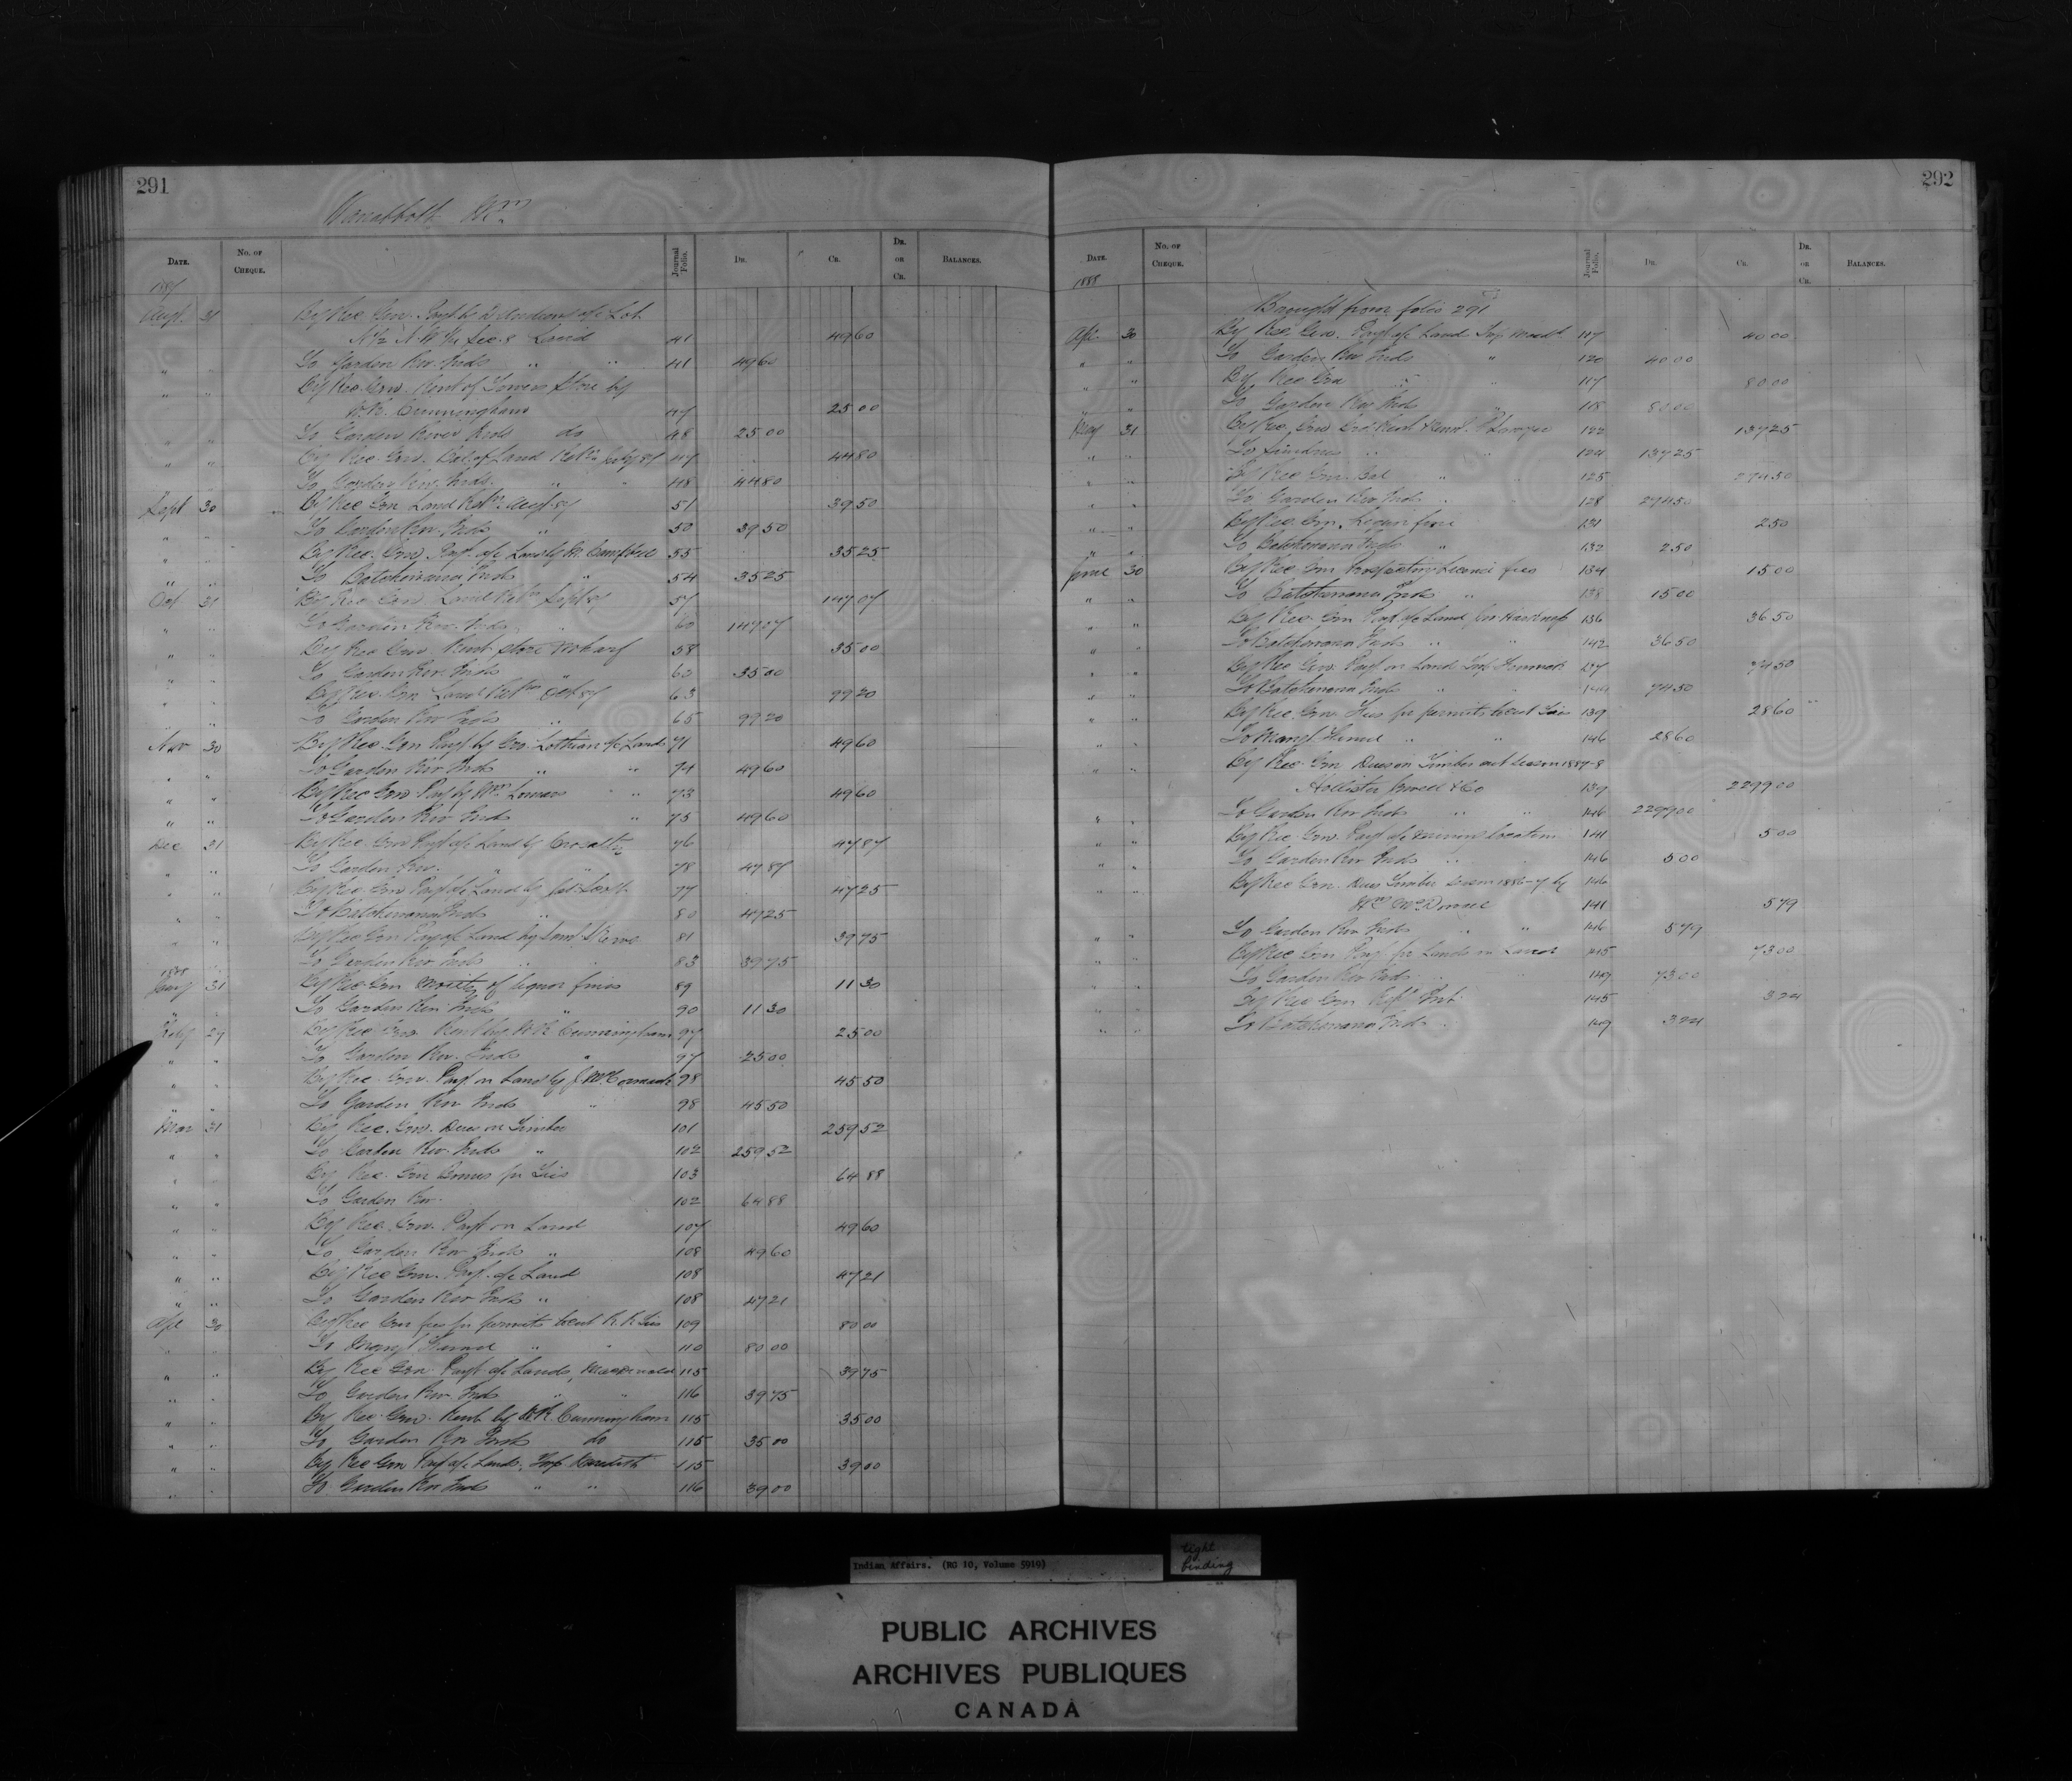 291
Vanabbott Wm
DATE. No. OF CHEQUE. Journal Folio. DR. CR. DR. or CR. BALANCES.
1887
Augt 31 By Rec Gen. Payt by D Andrews a/c Lot
N½ N.W ¼ Sec. 8 Land 41 49 60
" " To Garden Riv. Inds " " 41 49 60
" " By Rec Gen. Rent of Store by
W.R. Cunningham 47 25 00
" " To Garden River Inds do 48 25 00
" " By Rec. Gen. Bal. of Land Retn July 87 47 44 80
" " To Garden Riv. Inds. " " 48 44 80
Sept 30 By Rec Gen Land Retn Augt 87 51 39 50
" " To Garden Riv. Inds " 50 39 50
" " By Rec. Gen Payt a/c Land by M. Campbell 55 35 25
" " To Batchewana Inds " 54 35 25
Oct 31 By Rec Gen Land Retn Sept 87 57 147 07
" " To Garden Riv. Inds 60 147 07
" " By Rec Gen Rent store wharf 58 35 00
" " To Garden Riv. Inds " 63 35 00
" " By Rec. Gen Land Retn Oct 87 63 99 20
" " To Garden Riv Inds " 65 99 20
Nov 30 By Rec Gen Payt by Geo. Lothian a/c Land 71 49 60
" " To Garden Riv Inds " " 74 49 60
" " By Rec Gen Payt by Wm " " 73 49 60
" " To Garden Riv Inds " 75 49 60
Dec 31 By Rec Gen Payt a/c Land by 76 47 87
" " To Garden Riv. " " 78 47 87
" " By Rec Gen Payt a/c Land by 77 47 25
" " To Batchewana Inds " 80 47 25
" " By Rec Gen Payt a/c Land by 81 39 75
" " To Garden Riv Inds " 83 39 75
1888
Jany 31 By Rec Gen moiety of liquor fines 89 11 30
" " To Garden Riv Inds " 90 11 30
Feby 29 By Rec Gen Rent by W.R. Cunningham 97 25 00
" " To Garden Riv. Inds " 97 25 00
" " By Rec. Gen. Payt on Land by J. McCormack 98 45 50
" " To Garden Riv Inds " 98 45 50
Mar 31 By Rec. Gen. Dues on Timber 101 259 52
" " To Garden Riv. Inds " 102 259 52
" " By Rec. Gen Bonus for Ties 103 64 88
" " To Garden Riv. 102 64 88
" " By Rec. Gen. Payt on Land 107 49 60
" " To Garden Riv Inds " 108 49 60
" " By Rec Gen. Payt a/c Land 108 47 21
" " To Garden Riv Inds " 108 47 21
Apl 30 By Rec Gen fees for permits to cut R.R. Ties 109 80 00
" " To Mangt Fund " " 110 80 00
" " By Rec Gen Payt a/c Lands, Macdonald 115 39 75
" " To Garden Riv. Inds " " 116 39 75
" " By Rec. Gen. Rent by W.R. Cunningham 115 35 00
" " To Garden Riv Inds do 115 35 00
" " By Rec Gen Payt a/c Lands, 115 39 00
" " To Garden Riv Inds " " 116 39 00
292
DATE. No. OF CHEQUE. Journal Folio. DR. CR. DR. or CR. BALANCES.
1888
Brought from folio 291
Apl 30 By Rec. Gen. Payt a/c Land 117 40 00
" " To Garden Riv Inds " 120 40 00
" " By Rec Gen " " 117 80 00
" " To Garden Riv Inds " 118 80 00
May 31 By Rec. Gen 122 137 25
" " To Sundries " " 124 137 25
" " By Rec Gen Bal " " 125 274 50
" " To Garden Riv Inds " " 128 274 50
" " By Rec. Gen. Liquor fine 131 2 50
" " To Batchewana Inds " 132 2 50
June 30 By Rec. Gen Prospecting License fees 134 15 00
" " To Batchewana Inds " 138 15 00
" " By Rec. Gen Payt a/c Land 136 36 50
" " To Batchewana Inds " " 142 36 50
" " By Rec Gen. Payt on Land 137 74 50
" " To Batchewana Inds " " 149 74 50
" " By Rec. Gen. Fees for permits to cut Ties 139 28 60
" " To Mangt Fund " " 146 28 60
" " By Rec. Gen Dues on Timber cut season 1887-8
Hollister Jewell & Co 139 2299 00
" " To Garden Riv Inds " " 146 2299 00
" " By Rec. Gen. Payt a/c mining location 141 5 00
" " To Garden Riv Inds " " 146 5 00
" " By Rec Gen. Dues Timber season 1886-7 by 146
Wm McDonald 141 5 79
" " To Garden Riv Inds " " 146 5 79
" " By Rec Gen Payt for Lands on Land 145 73 00
" " To Garden Riv Inds " " 149 73 00
By Rec Gen. 145 3 24
" " To Batchewana Inds 149 3 24
Indian Affairs. (RG 10, Volume 5919)
tight
binding
PUBLIC ARCHIVES
ARCHIVES PUBLIQUES
CANADA